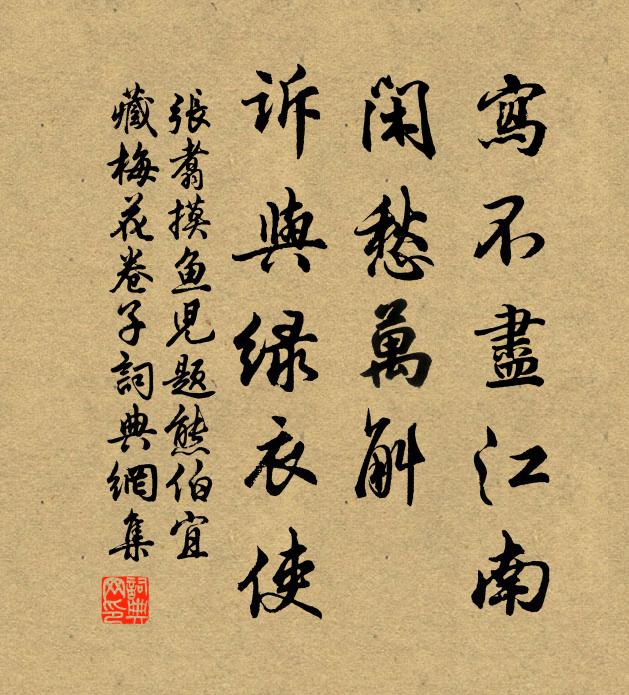 寫不盡江南
閑愁萬斛
訴與緑衣使
張翥摸魚兒題熊伯宜
藏梅花卷子詞典網集
詞典网印